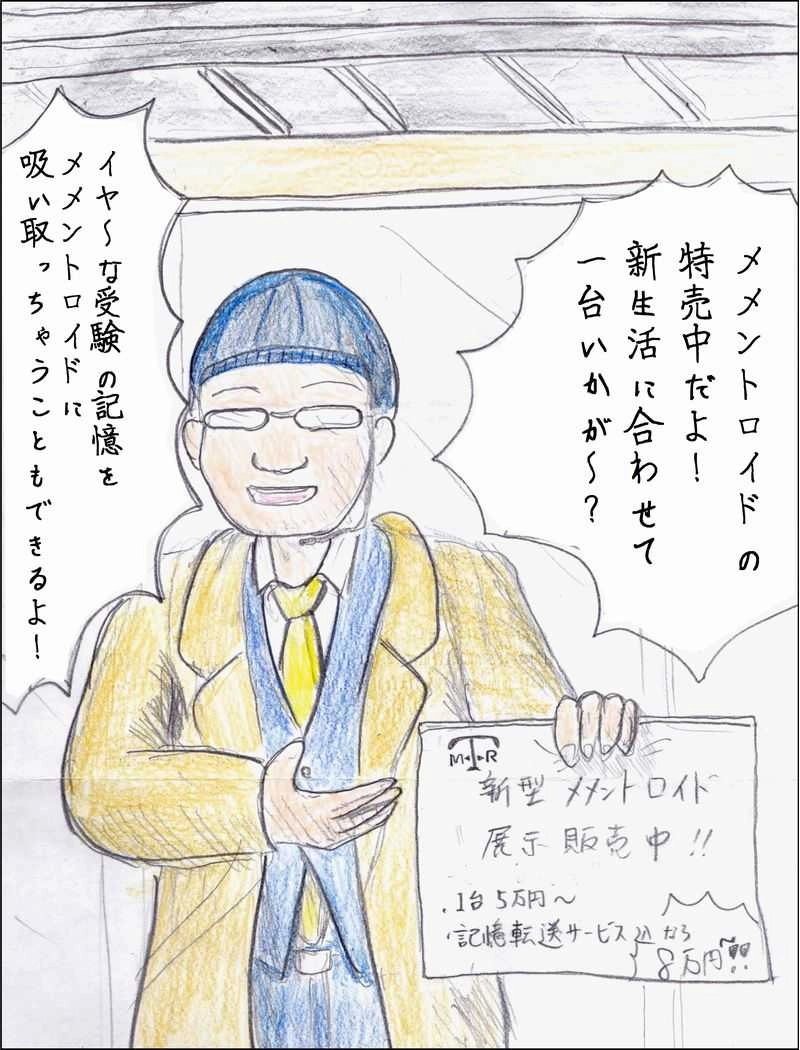 メメントロイドの
特売中だよ！
新生活に合わせて
一台いかが～？
イヤ～な受験の記憶を
メメントロイドに
吸い取っちゃうこともできるよ！
新型メメントロイド
展示販売中!!
・1台5万円～
・記憶転送サービス込なら
8万円～!!